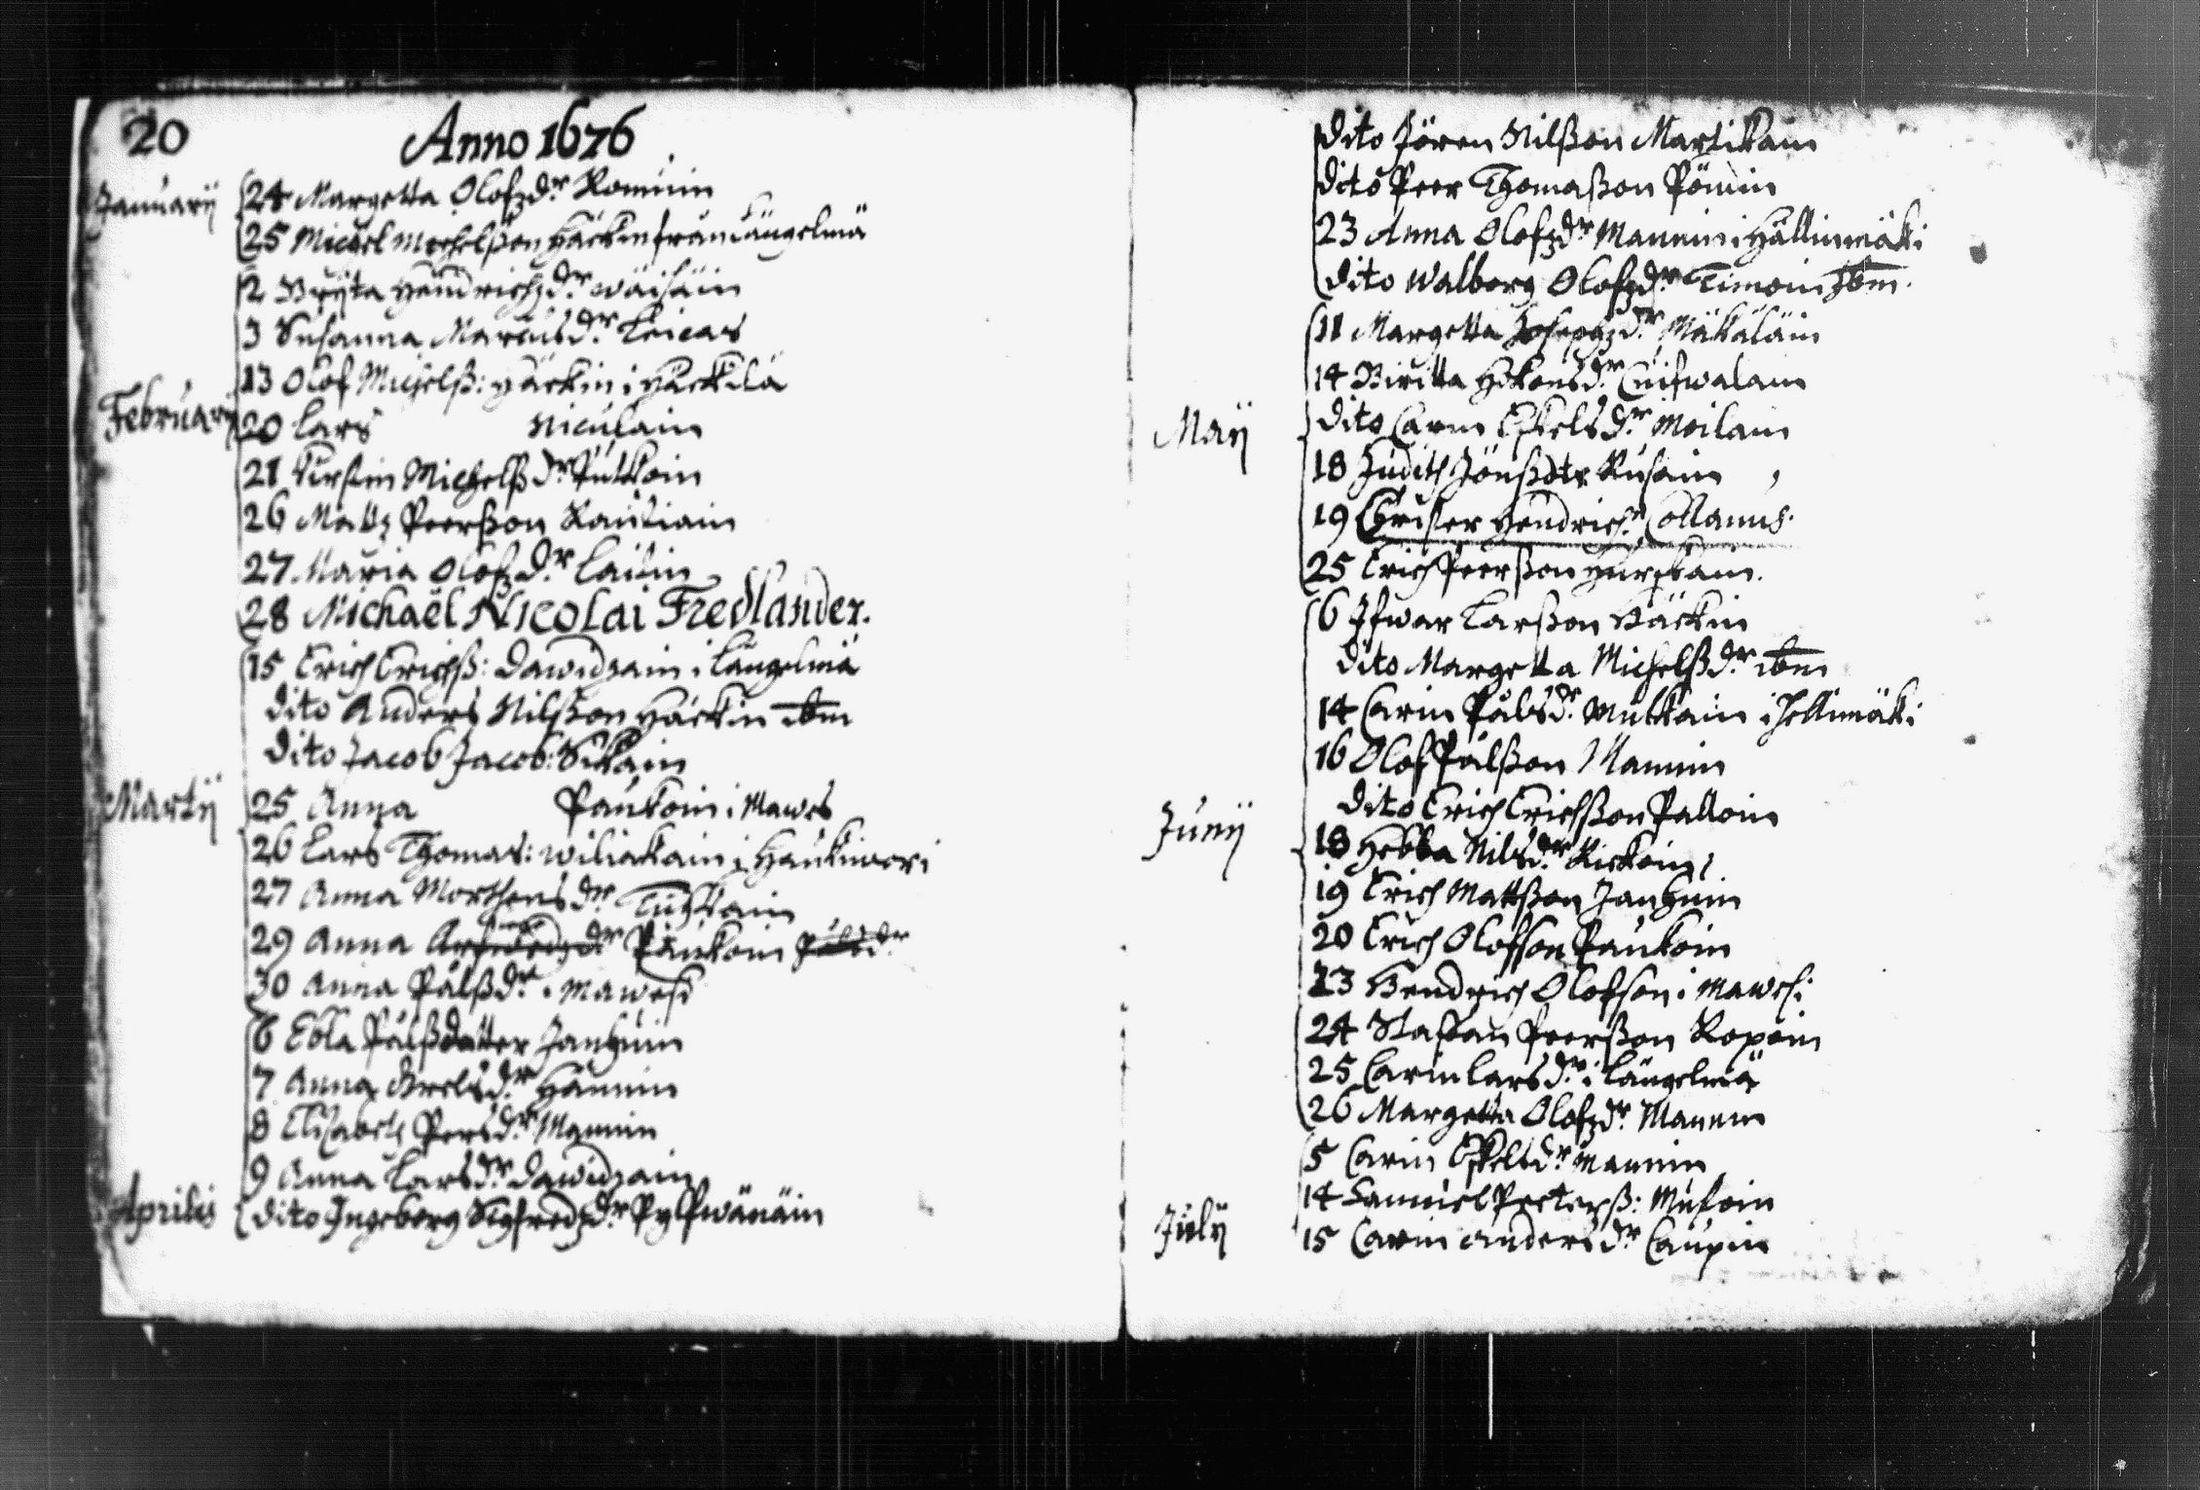 20 Anno 1676
Januarij 24 Margetta Olofzdr Romuin
25 Michel Michelßon Häckin från Längelmä
2 Brijta Hendrichzdr Wäisäin
3 Susanna Marcusdr Leicas
13 Olof Michelß: Häckin i Häckilä
Februarij 20 Lars Niculain
21 Kirstin Michelßdr Putkoin
26 Mattz Peerßon Rautiain
27 Maria Olofzdr Laitin
28 Michaël Nicolai Fredlander.
15 Erich Erichß: Dawidzain i Längelmä
dito Anders Nilßon Häckin ibm
dito Jacob Jacob: Sikain
Martij 25 Anna Paukoin i Mawes
26 Lars Thomas: Wiliakain i Haukiwori
27 Anna Morthensdr
29 Anna Paukoin Pålsdr
30 Anna Pålßdr i Mawesi
6 Ebla Pålßdatter Janhuin
7 Anna Grelsdr Hännin
8 Elizabeth Persdr Mannin
9 Anna Larsdr Dawidzain
Aprilis dito Ingeborg Sigfredzdr Pylfwänäin
dito Jören Nilßon Martikain
dito Peer Thomaßon Pöniin
23 Anna Olofzdr Mannin i Hällinmäki
dito Walborg Olofzdr Timoin Ibm.
11 Margetta Josephzdr Mäkäläin
14 Biritta Håkonsdr Cuifwalain
Maij dito Carin Eskelsdr Moilain
18 Judith Jönßdtr Rusain
19 Christer Hendrichr Collanus.
25 Erich Peerßon Hurskain.
6 Ifwar Larßon Häckin
dito Margetta Michelßdr ibm
14 Carin Pålsdr Mutkain i Hellimäki
16 Olof Pålßon Mannin
dito Erich Erichßon Palloin
Junij 18 Hebba Nilsdr Kickoin
19 Erich Mattßon Janhuin
20 Erich Olofsson Paukoin
23 Hendrich Olofson i Mawesi
24 Staffan Peerßon Ropoin
25 Carin Larsdr i Längelmä
26 Margetta Olofzdr Mannin
5 Carin Eskelsdr Mannin
14 Samuel Peeterß: Mutoin
Julij 15 Carin Andersdr Caupin